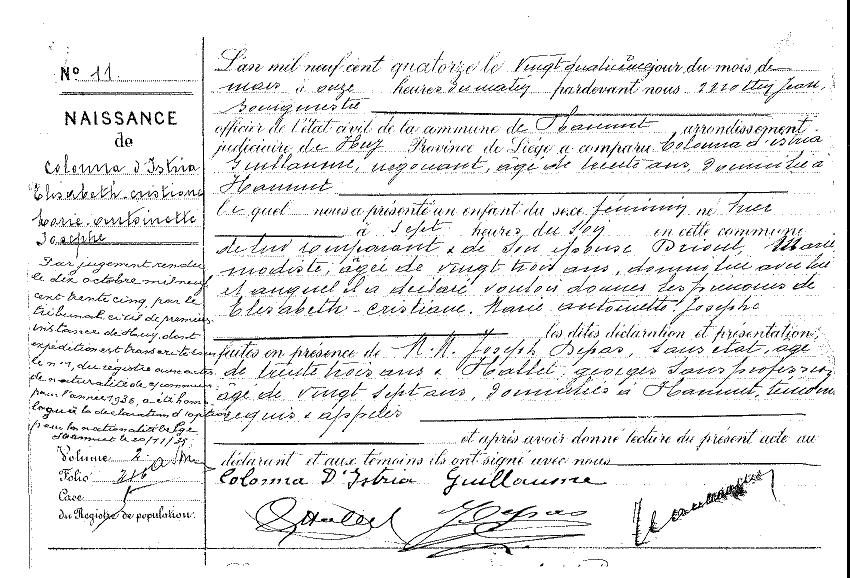 N° 11
NAISSANCE
de
Colonna d'Istria
Elisabeth-cristiane
Marie-Antoinette
Josephe
Par jugement rendu
le dix octobre mil neuf
cent trente cinq, par le
tribunal civil de première
instance de Huy, dont
expédition est transcrite sous
le n° 1, du registre aux actes
de naturalité de
pour l'année 1936, a été homo
loguée la déclaration d'option
pour la nationalité belge
Hannut le 20/11/
Volume 2
Folio 316
Case
du Registre de population.
L'an mil neuf cent quatorze le vingt quatrième jour du mois de
mars à onze heures du matin pardevant nous Mottin Jean,
Bourgmestre
officier de l'état civil de la commune de Hannut arrondissement
judiciaire de Huy Province de Liège a comparu Colonna d'Istria
Guillaume, négociant, âgé de trente ans, domicilié à
Hannut
le quel nous a présenté un enfant du sexe féminin né hier
à sept heures du soir en cette commune
de lui comparant & de son épouse Marie
modiste, âgée de vingt trois ans, domiciliée avec lui
et auquel il a déclaré vouloir donner les prénoms de
Elisabeth-cristiane. Marie antoinette. Josephe
les dites déclaration et présentation,
faites en présence de M.M. Joseph Depas, sans état, âgé
de trente trois ans & Hallet, georges sans profession
âgé de vingt sept ans, domiciliés à Hannut, témoins
requis & appelés
et après avoir donné lecture du présent acte au
déclarant et aux témoins ils ont signé avec nous
Colonna D'Istria Guillaume
GHallet JDepas